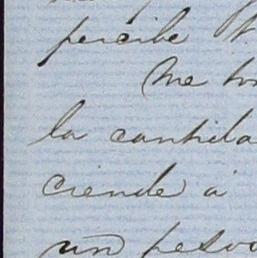 percibe
Me
la cantida
ciende á
un peso